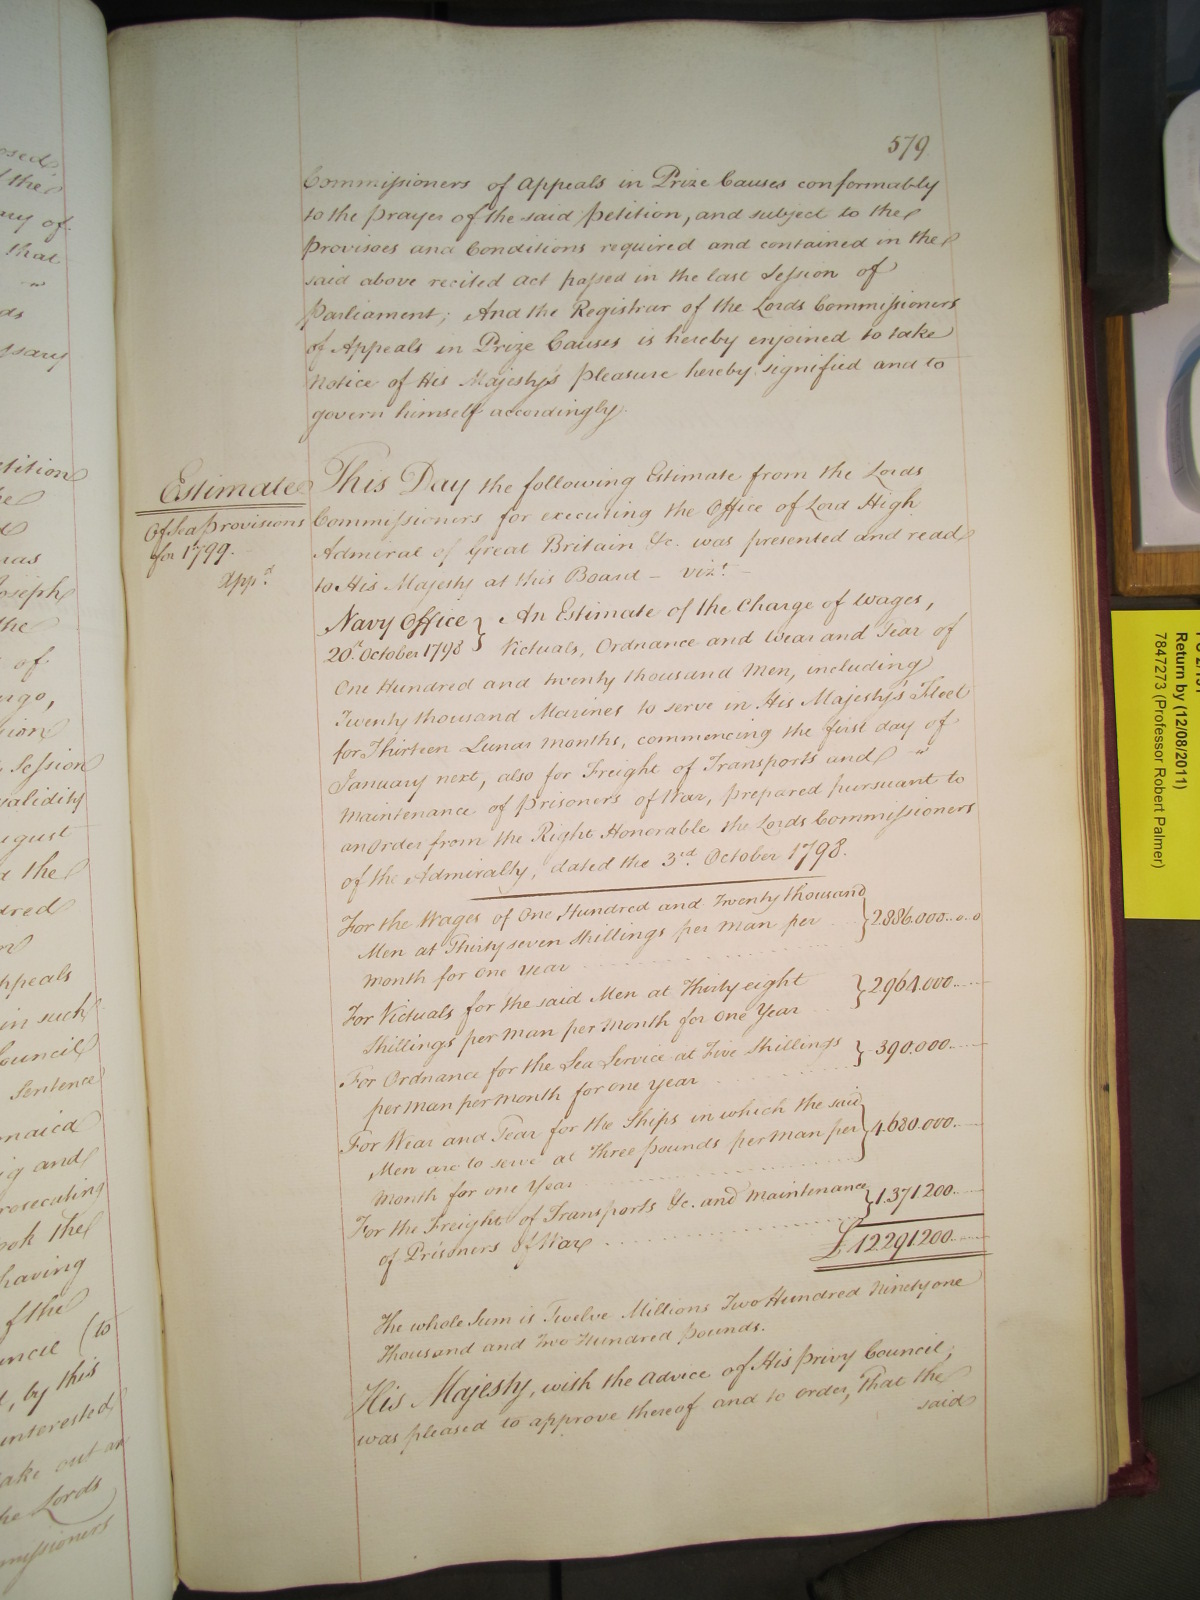 579
Commissioners of Appeals in Prize Causes conformably
to the prayer of the said petition, and subject to the
provisoes and Conditions required and contained in the
said above recited Act passed in the last Session of
Parliament; And the Registrar of the Lords Commissioners
of Appeals in Prize Causes is hereby enjoined to take
Notice of His Majesty's pleasure hereby signified and to
govern himself accordingly.
Estimate
Of Sea Provisions
for 1799.
App.d
This Day the following Estimate from the Lords
Commissioners for executing the Office of Lord High
Admiral of Great Britain &c. was presented and read
to His Majesty at this Board - vizt. -
Navy Office } An Estimate of the Charge of Wages,
20th October 1798 } Victuals, Ordnance and Wear and Tear of
One Hundred and twenty thousand Men, including
Twenty thousand Marines to serve in His Majesty's Fleet
for Thirteen Lunar Months, commencing the first day of
January next, also for Freight of Transports and
Maintenance of prisoners of War, prepared pursuant to
an order from the Right Honorable the Lords Commissioners
of the Admiralty, dated the 3rd October 1798.
For the Wages of One Hundred and Twenty thousand
Men at Thirty seven Shillings per Man per } 2.886.000..0..0
Month for One Year
For Victuals for the said Men at Thirty eight } 2964.000
Shillings per Man per Month for One Year
For Ordnance for the Sea Service at Five Shillings } 390.000
per Man per Month for one Year
For Wear and Tear for the Ships in which the said
Men are to serve at Three pounds per Man per } 4.680.000
Month for one Year
For the Freight of Transports &c. and Maintenance } 1.371200
of Prisoners of War
£12291200
The whole Sum is Twelve Millions Two Hundred Ninety one
Thousand and Two Hundred pounds.
His Majesty, with the Advice of His privy Council,
was pleased to approve thereof and to order, That the
said
Return by (12/08/2011)
7847273 (Professor Robert Palmer)
petition
Joseph
the
of
Session
validity
August
the
Appeals
in such
Council
Sentence
and
prosecuting
the
having
of the
(to
, by this
interested
take out an
the Lords